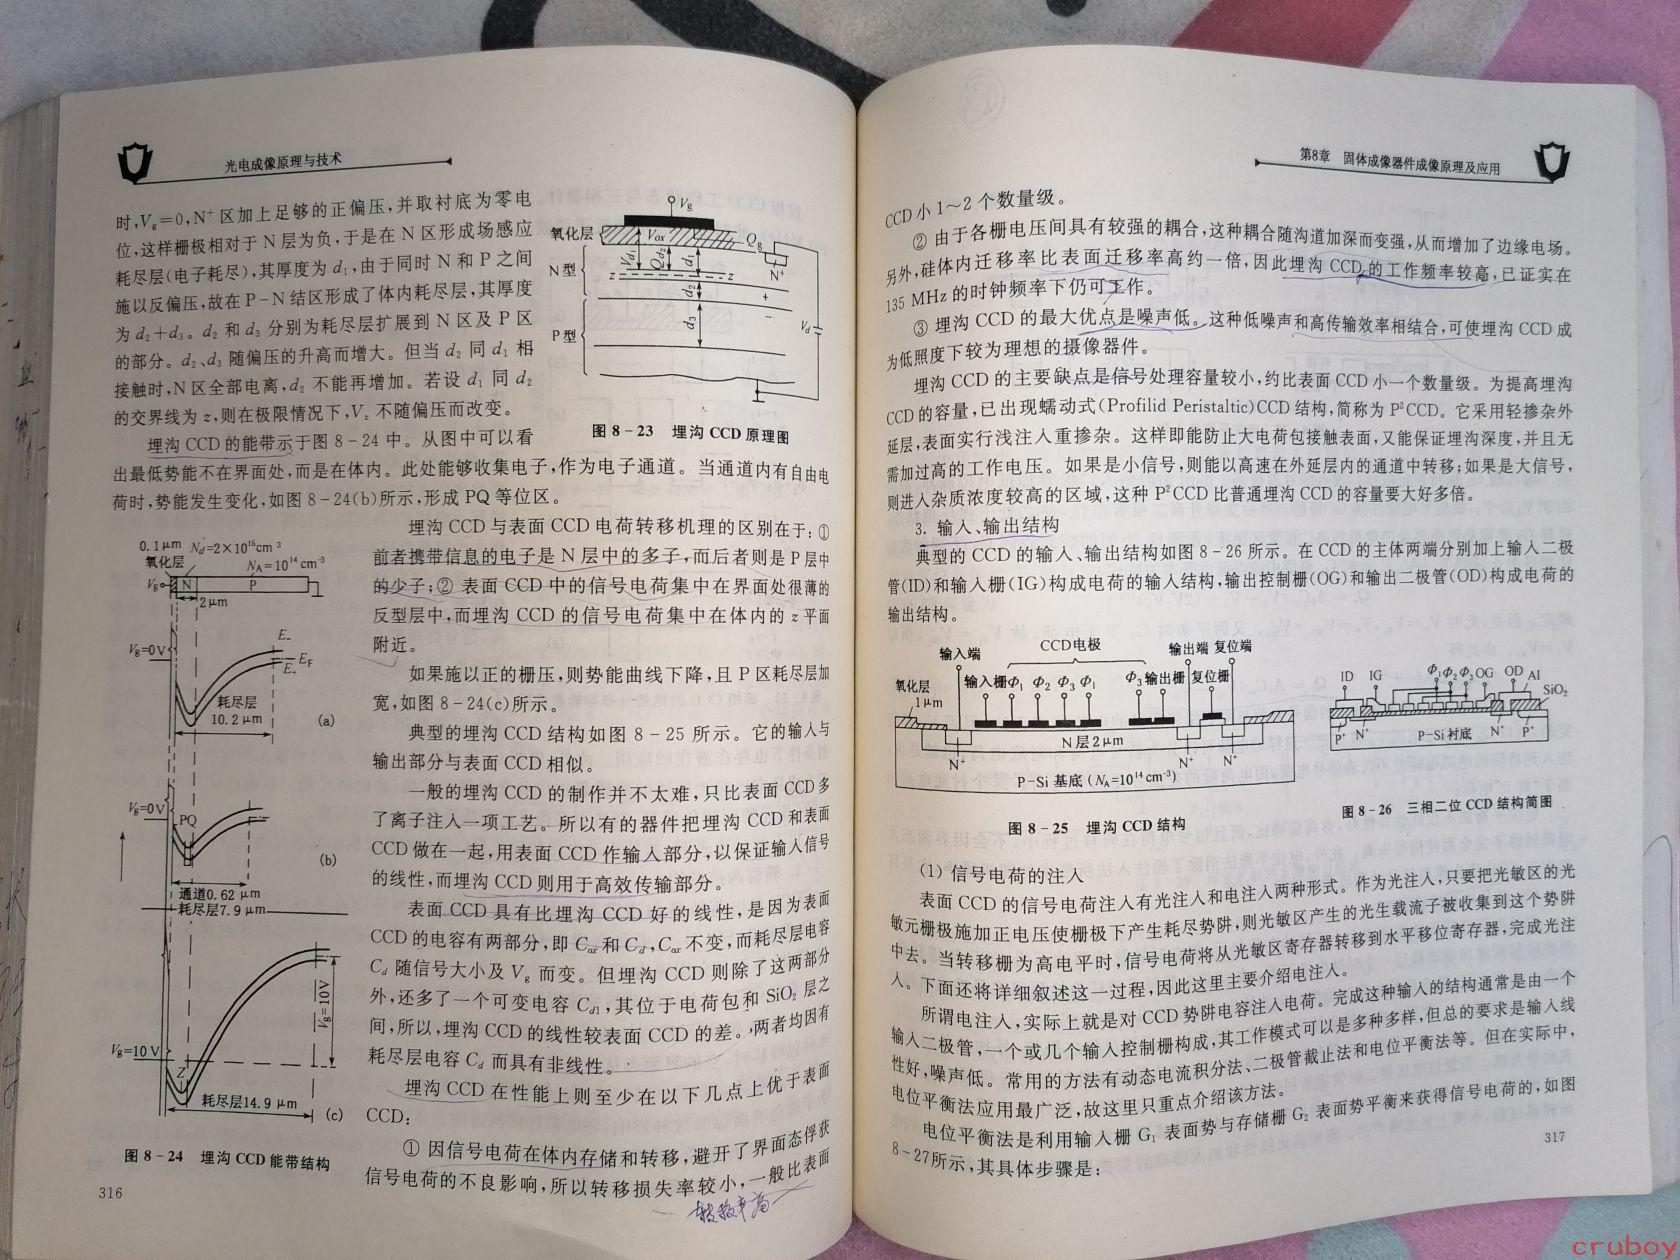 光电成像原理与技术
时,Vg=0,N⁺区加上足够的正偏压,并取衬底为零电
位,这样栅极相对于N层为负,于是在N区形成场感应
耗尽层(电子耗尽),其厚度为d₁,由于同时N和P之间
施以反偏压,故在P-N结区形成了体内耗尽层,其厚度
为d₂+d₃。d₂和d₃分别为耗尽层扩展到N区及P区
的部分。d₂、d₃随偏压的升高而增大。但当d₂同d₁相
接触时,N区全部电离,d₂不能再增加。若设d₁同d₂
的交界线为z,则在极限情况下,Vz不随偏压而改变。
Vg
氧化层
Vox
Qg
N型
Vd
z
z
d₁
d₂
d₃
N⁺
+
−
P型
Vd
图8-23 埋沟CCD原理图
埋沟CCD的能带示于图8-24中。从图中可以看
出最低势能不在界面处,而是在体内。此处能够收集电子,作为电子通道。当通道内有自由电
荷时,势能发生变化,如图8-24(b)所示,形成PQ等位区。
埋沟CCD与表面CCD电荷转移机理的区别在于:①
前者携带信息的电子是N层中的多子,而后者则是P层中
的少子;②表面CCD中的信号电荷集中在界面处很薄的
反型层中,而埋沟CCD的信号电荷集中在体内的z平面
附近。
如果施以正的栅压,则势能曲线下降,且P区耗尽层加
宽,如图8-24(c)所示。
典型的埋沟CCD结构如图8-25所示。它的输入与
输出部分与表面CCD相似。
一般的埋沟CCD的制作并不太难,只比表面CCD多
了离子注入一项工艺。所以有的器件把埋沟CCD和表面
CCD做在一起,用表面CCD作输入部分,以保证输入信号
的线性,而埋沟CCD则用于高效传输部分。
表面CCD具有比埋沟CCD好的线性,是因为表面
CCD的电容有两部分,即Cox和Cd,Cox不变,而耗尽层电容
Cd随信号大小及Vg而变。但埋沟CCD则除了这两部分
外,还多了一个可变电容Cd1,其位于电荷包和SiO₂层之
间,所以,埋沟CCD的线性较表面CCD的差。两者均因有
耗尽层电容Cd而具有非线性。
埋沟CCD在性能上则至少在以下几点上优于表面
CCD:
①因信号电荷在体内存储和转移,避开了界面态俘获
信号电荷的不良影响,所以转移损失率较小,一般比表面
0.1μm
Nd=2×10¹⁵cm⁻³
氧化层
NA=10¹⁴cm⁻³
Vg
N
P
2μm
Vg=0V
E₋
EF
E₊
耗尽层
10.2μm
(a)
Vg=0V
PQ
(b)
通道0.62μm
耗尽层7.9μm
Vg=10V
Vg=10V
Z
耗尽层14.9μm
(c)
图8-24 埋沟CCD能带结构
316
第8章 固体成像器件成像原理及应用
CCD小1~2个数量级。
②由于各栅电压间具有较强的耦合,这种耦合随沟道加深而变强,从而增加了边缘电场。
另外,硅体内迁移率比表面迁移率高约一倍,因此埋沟CCD的工作频率较高,已证实在
135 MHz的时钟频率下仍可工作。
③埋沟CCD的最大优点是噪声低。这种低噪声和高传输效率相结合,可使埋沟CCD成
为低照度下较为理想的摄像器件。
埋沟CCD的主要缺点是信号处理容量较小,约比表面CCD小一个数量级。为提高埋沟
CCD的容量,已出现蠕动式(Profilid Peristaltic)CCD结构,简称为P²CCD。它采用轻掺杂外
延层,表面实行浅注入重掺杂。这样即能防止大电荷包接触表面,又能保证埋沟深度,并且无
需加过高的工作电压。如果是小信号,则能以高速在外延层内的通道中转移;如果是大信号,
则进入杂质浓度较高的区域,这种P²CCD比普通埋沟CCD的容量要大好多倍。
3. 输入、输出结构
典型的CCD的输入、输出结构如图8-26所示。在CCD的主体两端分别加上输入二极
管(ID)和输入栅(IG)构成电荷的输入结构,输出控制栅(OG)和输出二极管(OD)构成电荷的
输出结构。
输入端
CCD电极
输出端 复位端
氧化层
1μm
输入栅Φ₁ Φ₂ Φ₃ Φ₁
Φ₃输出栅 复位栅
N层2μm
N⁺
N⁺
N⁺
P-Si基底(NA=10¹⁴cm⁻³)
图8-25 埋沟CCD结构
ID IG Φ₁Φ₂Φ₃OG OD Al
SiO₂
P⁺ N⁺ P-Si衬底 N⁺ P⁺
图8-26 三相二位CCD结构简图
(1) 信号电荷的注入
表面CCD的信号电荷注入有光注入和电注入两种形式。作为光注入,只要把光敏区的光
敏元栅极施加正电压使栅极下产生耗尽势阱,则光敏区产生的光生载流子被收集到这个势阱
中去。当转移栅为高电平时,信号电荷将从光敏区寄存器转移到水平移位寄存器,完成光注
入。下面还将详细叙述这一过程,因此这里主要介绍电注入。
所谓电注入,实际上就是对CCD势阱电容注入电荷。完成这种输入的结构通常是由一个
输入二极管,一个或几个输入控制栅构成,其工作模式可以是多种多样,但总的要求是输入线
性好,噪声低。常用的方法有动态电流积分法、二极管截止法和电位平衡法等。但在实际中,
电位平衡法应用最广泛,故这里只重点介绍该方法。
电位平衡法是利用输入栅G₁表面势与存储栅G₂表面势平衡来获得信号电荷的,如图
8-27所示,其具体步骤是:
317
cruboy